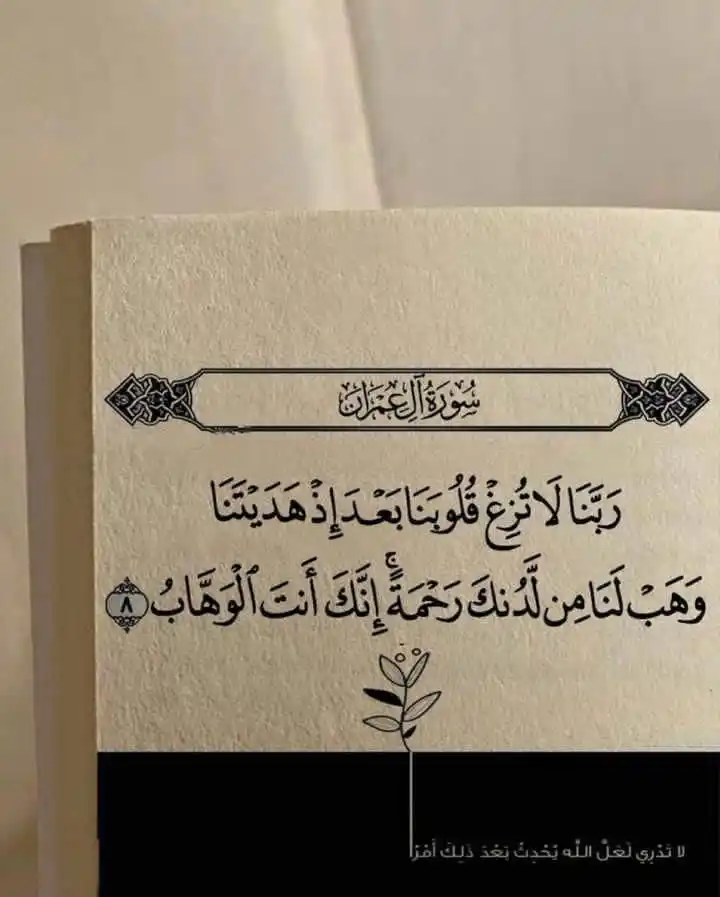 سُورَةُ آلِ عِمْرَان
رَبَّنَا لَا تُزِغْ قُلُوبَنَا بَعْدَ إِذْ هَدَيْتَنَا
وَهَبْ لَنَا مِن لَّدُنكَ رَحْمَةً ۚ إِنَّكَ أَنتَ ٱلْوَهَّابُ ٨
لا تَدْرِي لَعَلَّ اللَّه يُحْدِثُ بَعْدَ ذَلِكَ أَمْرًا